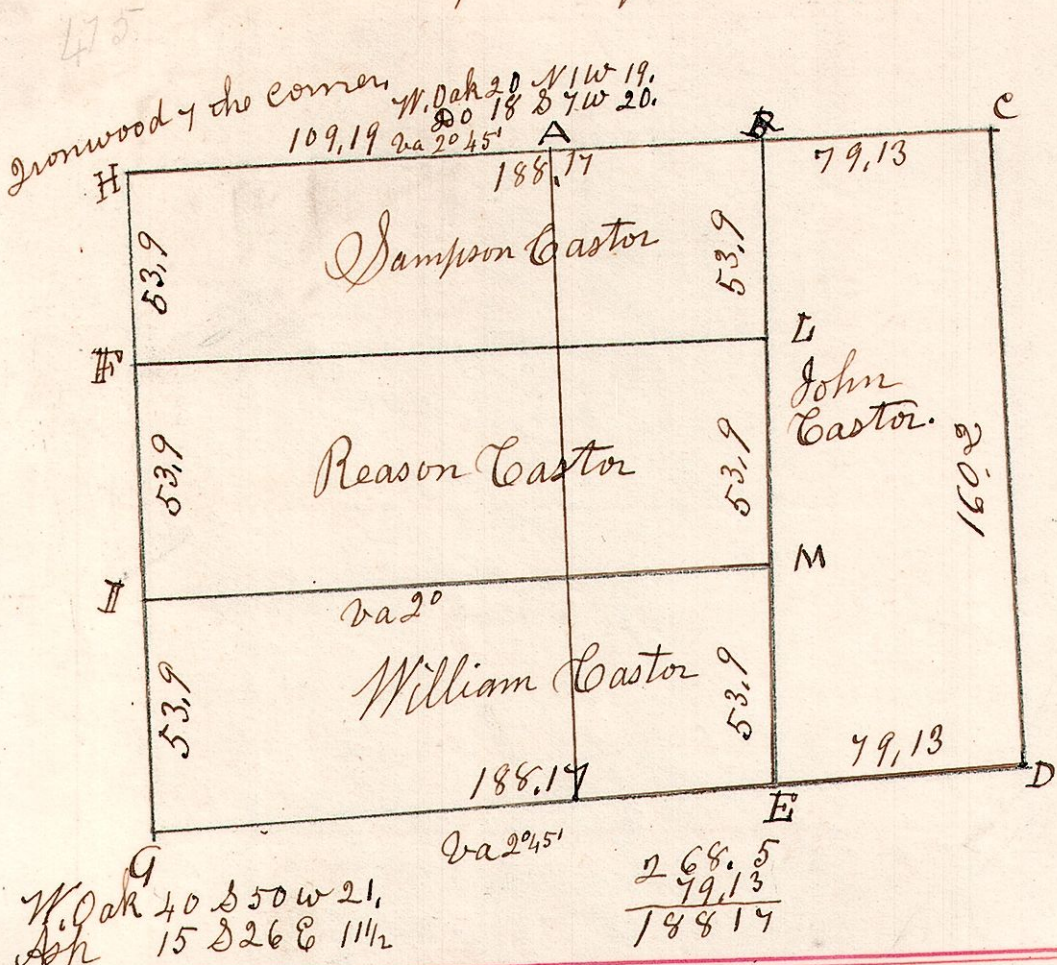 475
Ironwood y the corner.
W. Oak 20 N 1 W 19.
Do 18 S 7 W 20.
109,19 va 2° 45'
A
B
C
H
188.17
79,13
Sampson Castor
53,9
53,9
L
John
Castor.
Reason Castor
53,9
53,9
160,2
M
I
va 2°
William Castor
53,9
53,9
79,13
188.17
D
E
va 2° 45'
G
268.5
79,13
18817
W. Oak 40 S 50 W 21,
Ash 15 S 26 E 11 1/2